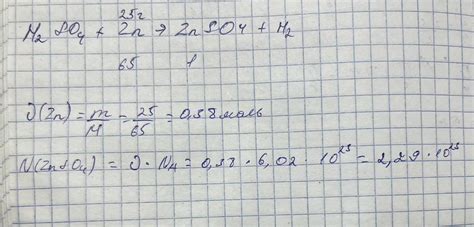 25г
H₂SO₄ + Zn → ZnSO4 + H₂
65 1
ν(Zn) = m/M = 25/65 = 0,38 моль
N(ZnSO₄) = ν · NA = 0,38 · 6,02 · 10²³ = 2,29 · 10²³